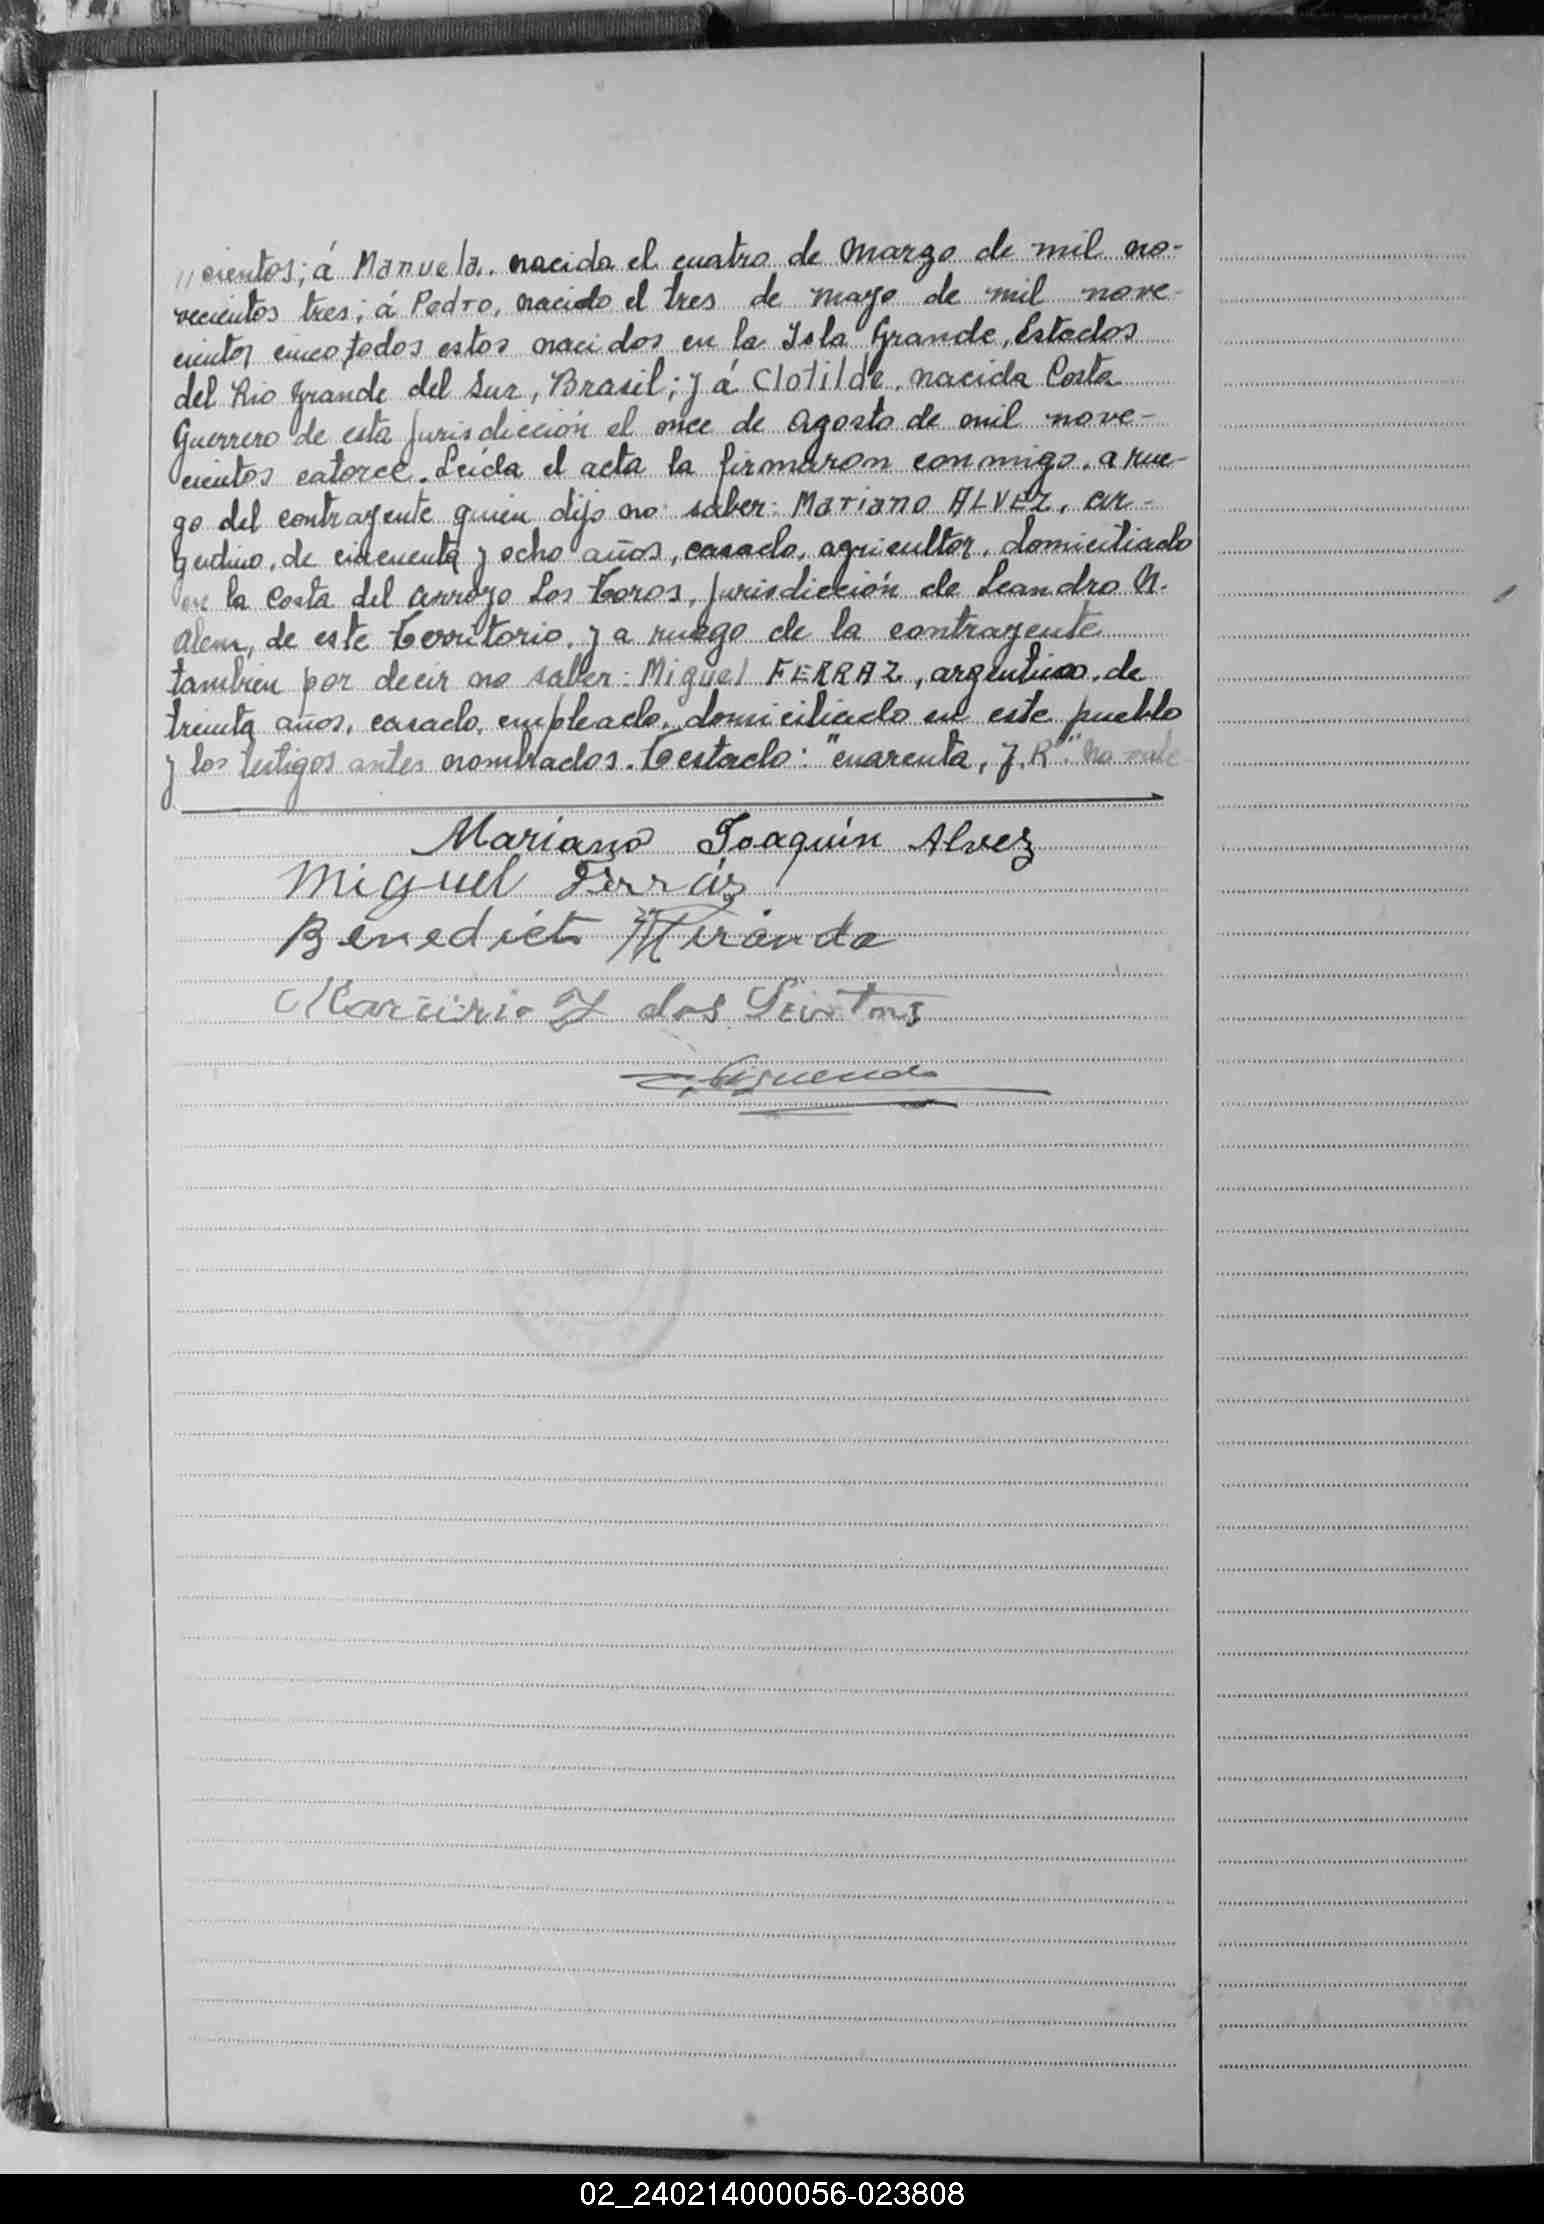 "cientos; á Manuela, nacida el cuatro de Marzo de mil no-
vecientos tres; á Pedro, nacido el tres de mayo de mil nove-
cientos cinco, todos estos nacidos en la Isla Grande, Estados
del Rio Grande del Sur, Brasil; y á Clotilde, nacida Costa
Guerrero de esta jurisdicción el once de Agosto de mil nove-
cientos catorce. Leída el acta la firmaron conmigo, a rue-
go del contrayente quien dijo no saber: Mariano ALVEZ, ar-
gentino, de cincuenta y ocho años, casado, agricultor, domiciliado
en la Costa del Arroyo Los Toros, jurisdicción de Leandro N.
Alem, de este Territorio, y a ruego de la contrayente
tambien por decir no saber: Miguel FERRAZ, argentino, de
treinta años, casado, empleado, domiciliado en este pueblo
y los testigos antes nombrados. Testado: "cuarenta, y, R". No vale
Mariano Joaquin Alvez
Miguel Ferráz
Benedicto Miranda
dos
02_240214000056-023808